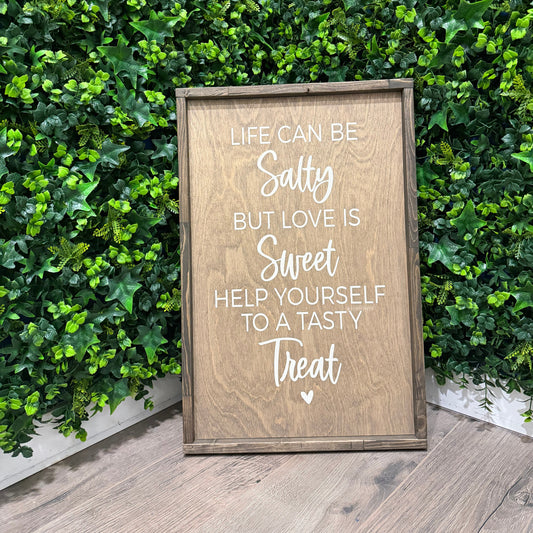 LIFE CAN BE
Salty
BUT LOVE IS
Sweet
HELP YOURSELF
TO A TASTY
Treat